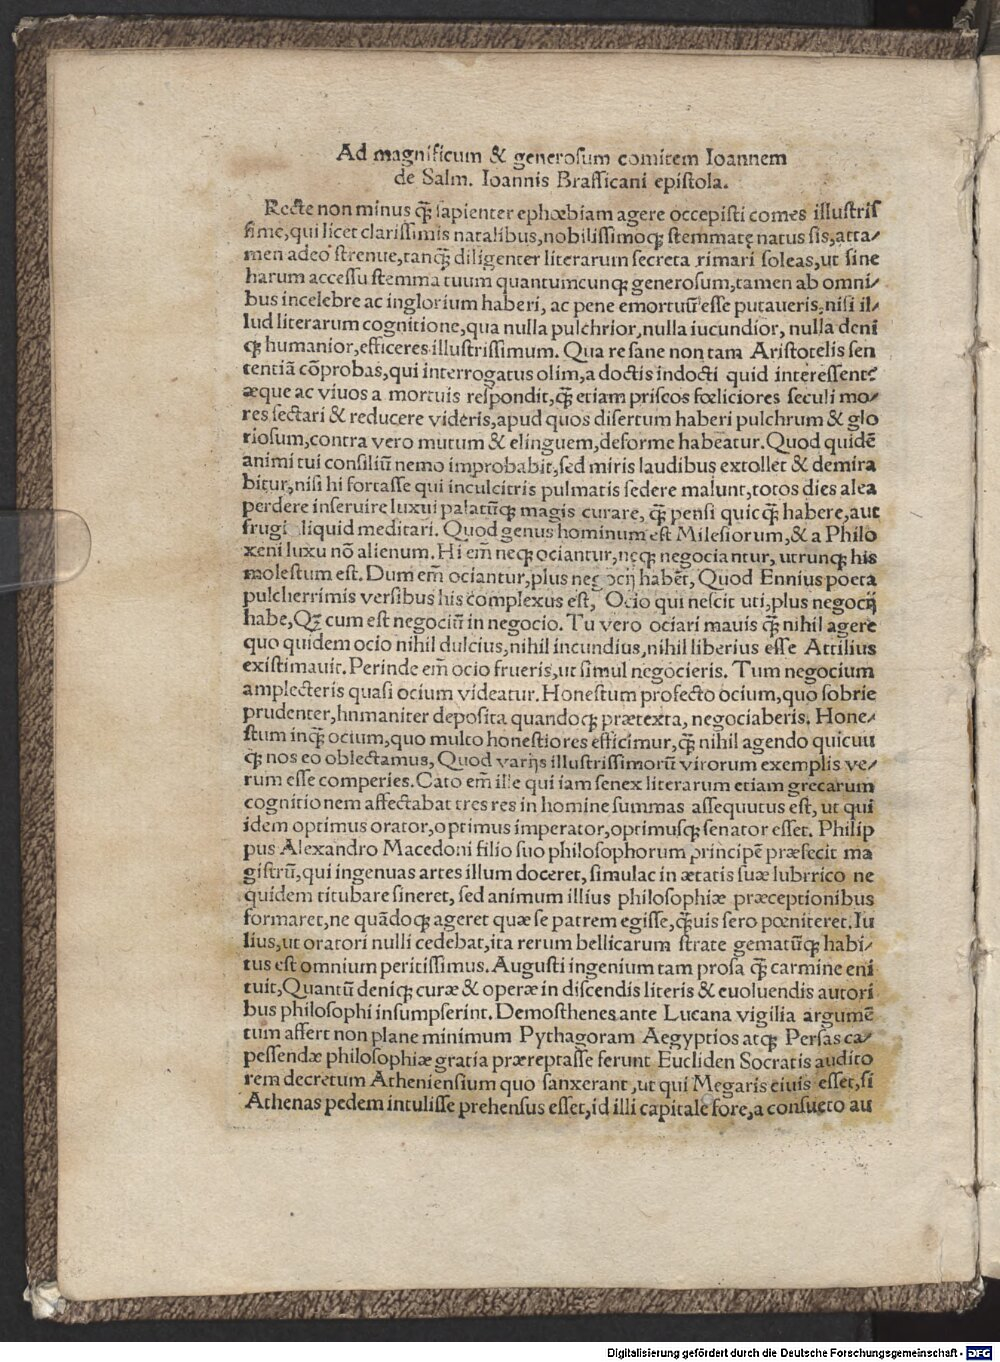 Ad magnificum & generosum comitem Ioannem
de Salm. Ioannis Brassicani epistola.
Recte non minus ꝙ̃ sapienter ephœbiam agere occepisti comes illustris
sime,qui licet clarissimis natalibus,nobilissimoqꝫ stemmatę natus sis,atta⸗
men adeo strenue,tanꝙ̃ diligenter literarum secreta rimari soleas,ut sine
harum accessu stemma tuum quantumcunqꝫ generosum,tamen ab omni⸗
bus incelebre ac inglorium haberi, ac pene emortuũ esse putaueris,nisi il⸗
lud literarum cognitione,qua nulla pulchrior,nulla iucundior, nulla deni
qꝫ humanior,efficeres illustrissimum. Qua re sane non tam Aristotelis sen
tentiã cõprobas,qui interrogatus olim,a doctis indocti quid interessent?
æque ac viuos a mortuis respondit,ꝙ̃ etiam priscos fœliciores seculi mo⸗
res sectari & reducere videris,apud quos disertum haberi pulchrum & glo
riosum,contra vero mutum & elinguem,deforme habeatur.Quod quidẽ
animi tui consiliũ nemo improbabit,sed miris laudibus extollet & demira
bitur,nisi hi fortasse qui inculcitris pulmatis sedere malunt,totos dies alea
perdere inseruire luxui palatũqꝫ magis curare, ꝙ̃ pensi quicꝙ̃ habere,aut
frugi liquid meditari. Quod genus hominum est Milesiorum,& a Philo
xeni luxu nõ alienum. Hi em̃ neqꝫ ociantur,neqꝫ negociantur, utrunqꝫ his
molestum est. Dum em̃ ociantur,plus neg ocij habẽt, Quod Ennius poeta
pulcherrimis versibus his complexus est, Ocio qui nescit uti,plus negocij
habe,Qꝫ cum est negociũ in negocio. Tu vero ociari mauis ꝙ̃ nihil agere
quo quidem ocio nihil dulcius,nihil incundius,nihil liberius esse Attilius
existimauit. Perinde em̃ ocio frueris,ut simul negocieris. Tum negocium
amplecteris quasi ocium videatur. Honestum profecto ocium,quo sobrie
prudenter,hnmaniter deposita quandoqꝫ prætexta, negociaberis. Hone⸗
stum inꝙ̃ ocium,quo multo honestiores efficimur,ꝙ̃ nihil agendo quicuu
qꝫ nos eo oblectamus, Quod varijs illustrissimorũ virorum exemplis ve⸗
rum esse comperies. Cato em̃ ille qui iam senex literarum etiam grecarum
cognitionem affectabat tres res in homine summas assequutus est, ut qui
idem optimus orator,optimus imperator,optimusqꝫ senator esset. Philip
pus Alexandro Macedoni filio suo philosophorum principẽ præfecit ma
gistrũ,qui ingenuas artes illum doceret, simulac in ætatis suæ lubrrico ne
quidem titubare sineret, sed animum illius philosophiæ præceptionibus
formaret,ne quãdoqꝫ ageret quæ se patrem egisse,ꝙ̃uis sero pœniteret. Iu
lius,ut oratori nulli cedebat,ita rerum bellicarum strate gematũqꝫ habi⸗
tus est omnium peritissimus. Augusti ingenium tam prosa ꝙ̃ carmine eni
tuit,Quantũ deniqꝫ curæ & operæ in discendis literis & euoluendis autori
bus philosophi insumpserint. Demosthenes ante Lucana vigilia argumẽ
tum affert non plane minimum Pythagoram Aegyptios atqꝫ Persas ca⸗
pessendæ philosophiæ gratia præreptasse ferunt Eucliden Socratis audito
rem decretum Atheniensium quo sanxerant,ut qui Megaris ciuis esset,si
Athenas pedem intulisse prehensus esset,id illi capitale fore,a consueto au
Digitalisierung gefördert durch die Deutsche Forschungsgemeinschaft - DFG